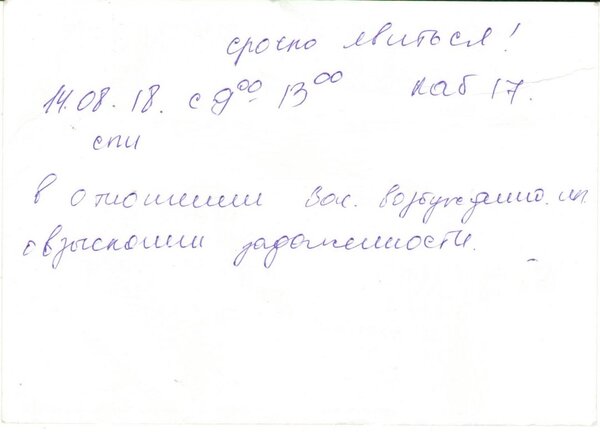 срочно явиться!
14.08.18. с 9⁰⁰- 13⁰⁰ каб 17.
спи
в отношении Вас. возбуждено. ип.
о взыскании задолженности.